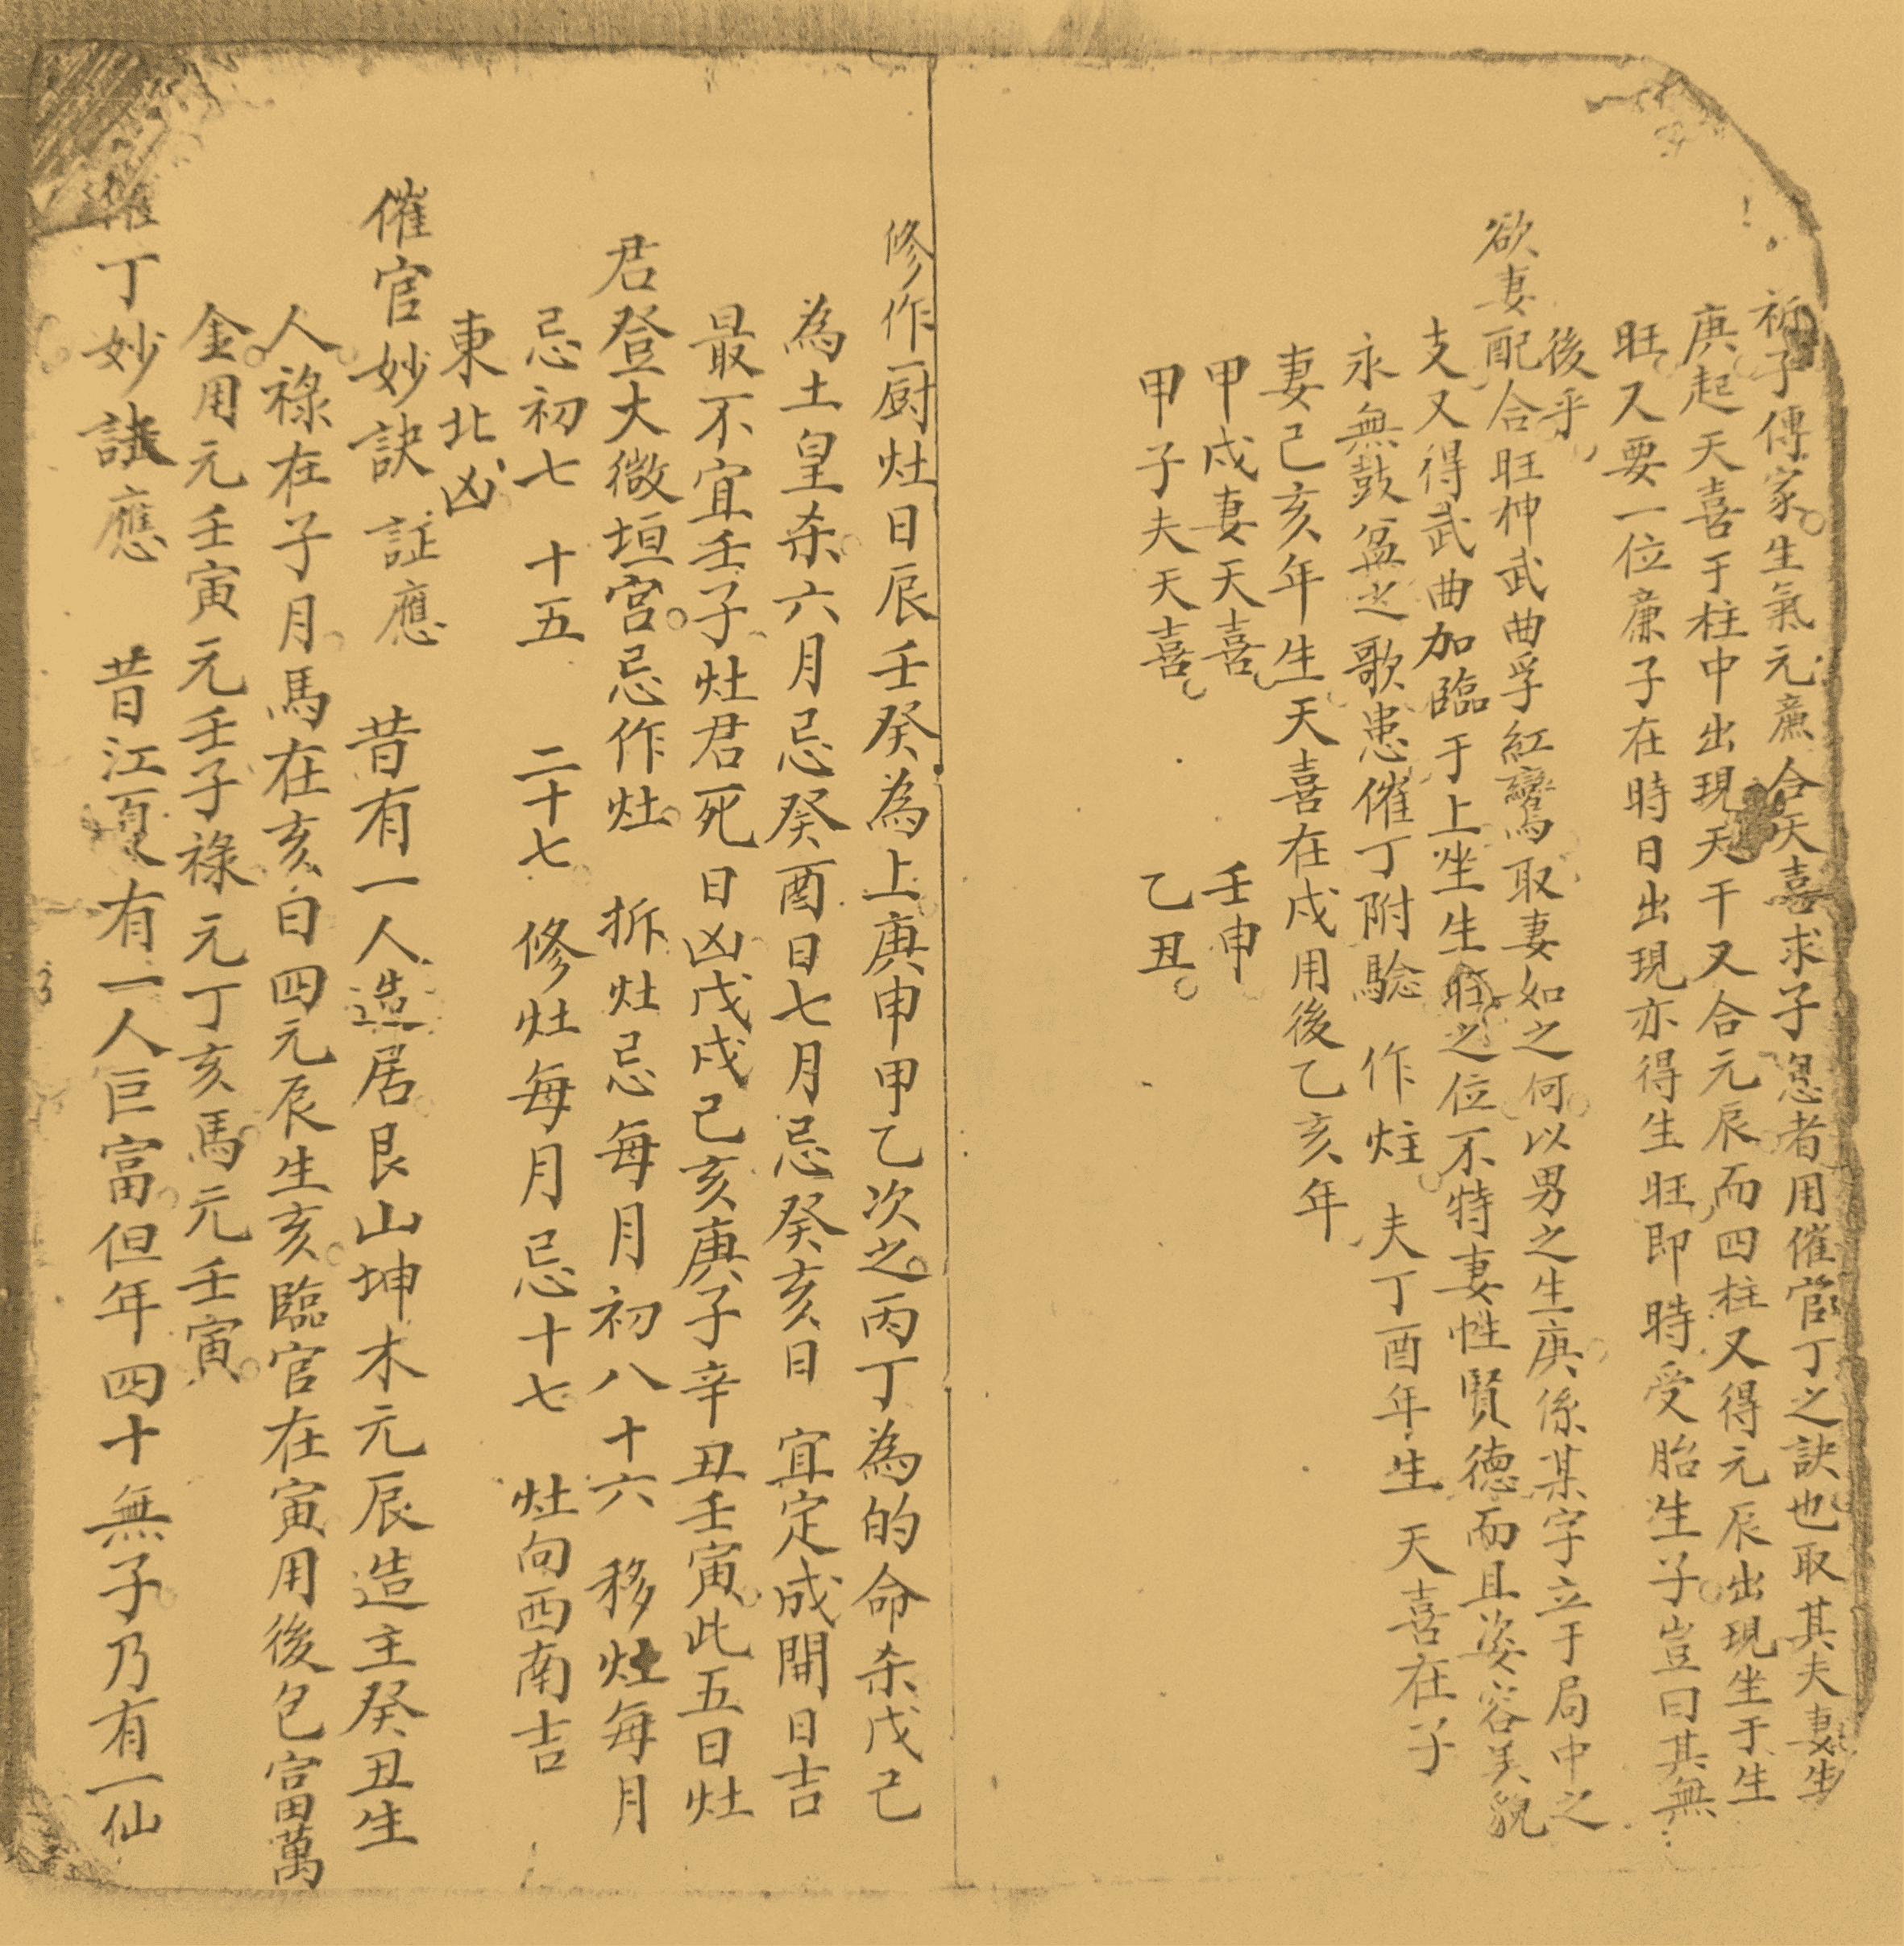 祈子傳家生氣元廉合天喜求子息者用催官丁之訣也取其夫妻生
庚起天喜于柱中出現天干又合元辰而四柱又得元辰出現坐于生
旺又要一位廉子在時日出現亦得生旺即時受胎生子豈曰其無
後乎
欲妻配合旺神武曲孚紅鸞取妻如之何以男之生庚係某字立于局中之
支又得武曲加臨于上坐生旺之位不特妻性賢德而且姿容美貌
永無鼓盆之歌患催丁附驗 作炷 夫丁酉年生 天喜在子
妻己亥年生天喜在戍用後乙亥年
甲戍妻天喜 壬申
甲子夫天喜 乙丑
修作厨灶日辰壬癸為上庚申甲乙次之丙丁為的命杀戊己
為土皇杀六月忌癸酉日七月忌癸亥日 宜定成開日吉
最不宜壬子灶君死日凶戊戍己亥庚子辛丑壬寅此五日灶
君登大微垣宮忌作灶 拆灶忌每月初八十六 移灶每月
忌初七 十五 二十七 修灶每月忌十七 灶向西南吉
東北凶
催官妙訣 証應 昔有一人造居艮山坤木元辰造主癸丑生
人祿在子月馬在亥白四元辰生亥臨官在寅用後包富萬
金用元壬寅元壬子祿元丁亥馬元壬寅
催丁妙訣應 昔江夏有一人巨富但年四十無子乃有一仙